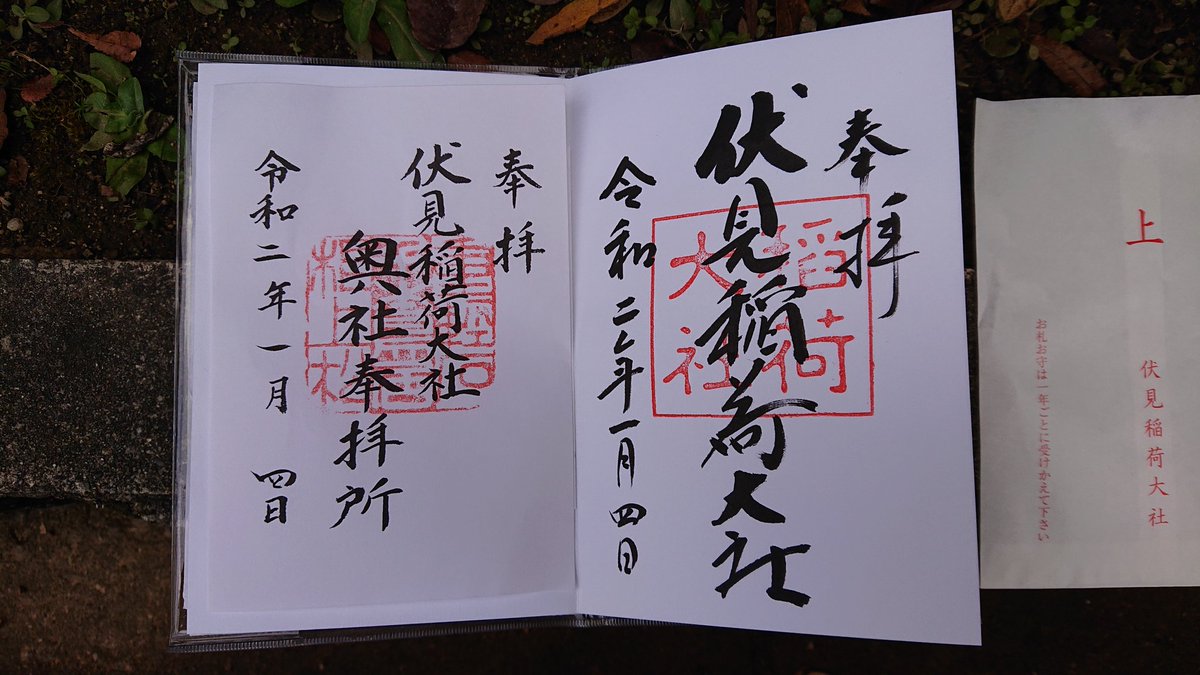 奉拝
伏見稲荷大社
令和二年一月四日
稲荷
大社
奉拝
伏見稲荷大社
奥社奉拝所
令和二年一月四日
上
伏見稲荷大社
お札お守は一年ごとに受けかえて下さい